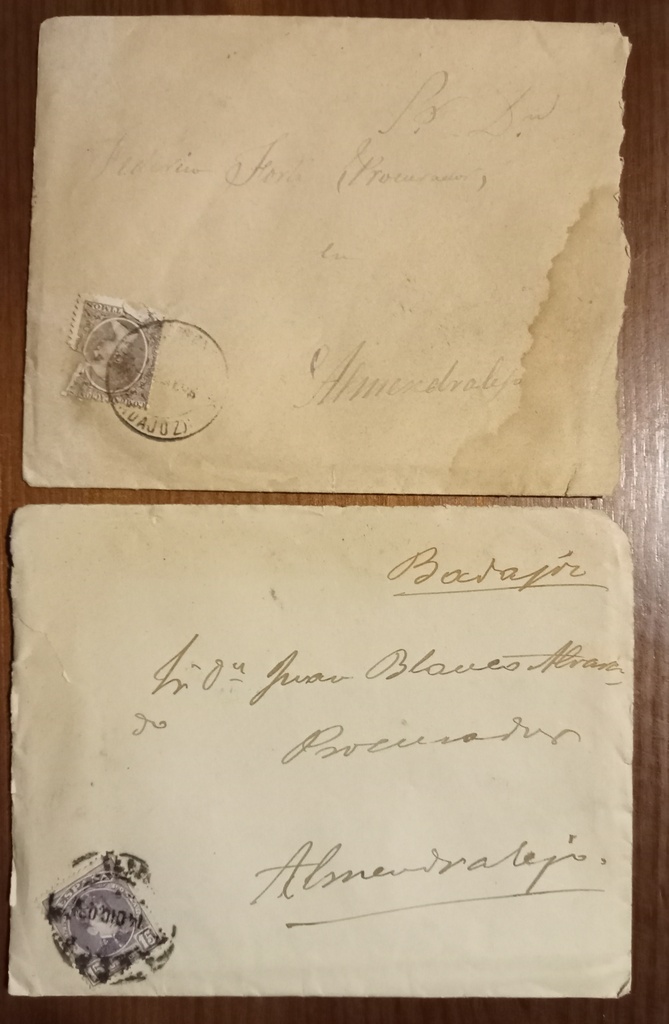 Sr Dn
Federico Forte (Procurador)
en
Almendralejo
BADAJOZ
Badajóz
Sr Dn Juan Blanco Alvara-
do
Procurador
Almendralejo.
15